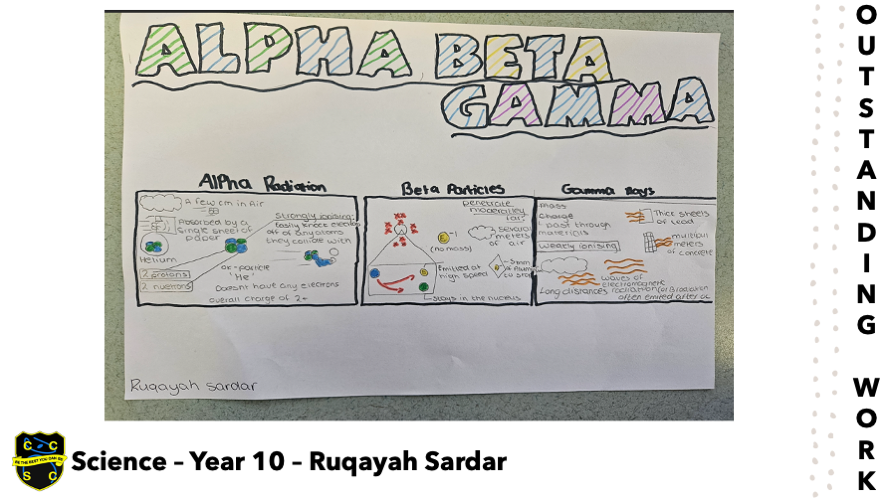 ALPHA BETA
GAMMA
Alpha Radiation
A few cm in Air
Absorbed by a
single sheet of
paper
Helium
2 protons
2 nuetrons
Strongly ionising:
Easily knock electrons
off of any atoms
they collide with
or α-particle
'He'
Doesnt have any electrons
overall charge of 2+
Beta Particles
penetrate
moderatley
far
several
meters
of air
-1
(no mass)
Emitted at
high speed
5mm
to stop
stays in the nucleus
Gamma Rays
mass
charge
past through
materials
weakly ionising
Thick sheets
of lead
multipul
meters
of concrete
waves of
electromagnetic
Long distances radiation
often emited after
Ruqayah Sardar
Science – Year 10 – Ruqayah Sardar
C C
BE THE BEST YOU CAN BE
S C
OUTSTANDING WORK